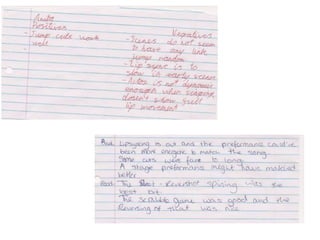 Auto
Positives
- Jump cuts work
well
-
Negatives
- Scenes do not seem
to have any link
jump random
- Lip sync is to
slow in early scene
- Artist is not dynamic
enough when
doesn't show full
lip movement
Bad Lipsyncing is out and the preformance could've
been more energetic to match the song.
Some cuts were far to long.
A stage preformance might have matched
better
Good The shot - Revershot spinning was the
best bit.
The scrabble game was good and the
Reversing of that was nice